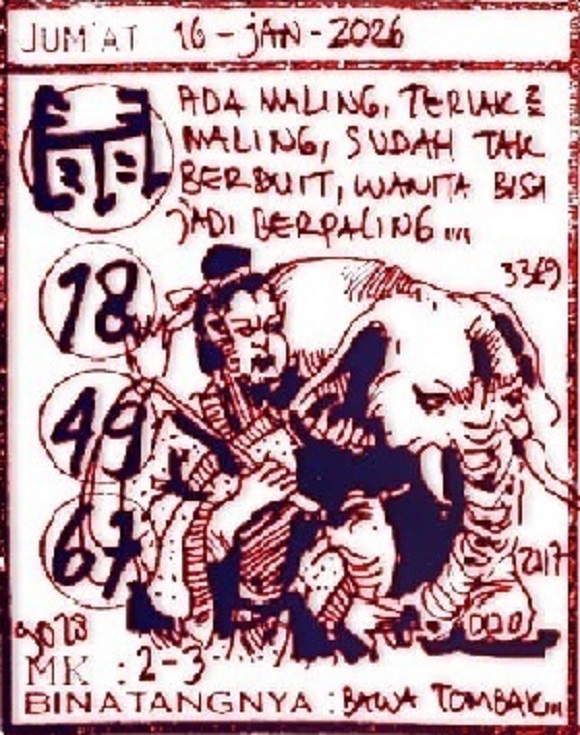 JUM'AT 16-JAN-2026
ADA MALING, TERIAK²
MALING, SUDAH TAK
BERDUIT, WANITA BISA
JADI BERPALING...
18
3369
49
67
2017
0020
9078
MK : 2-3
BINATANGNYA : BAWA TOMBAK...